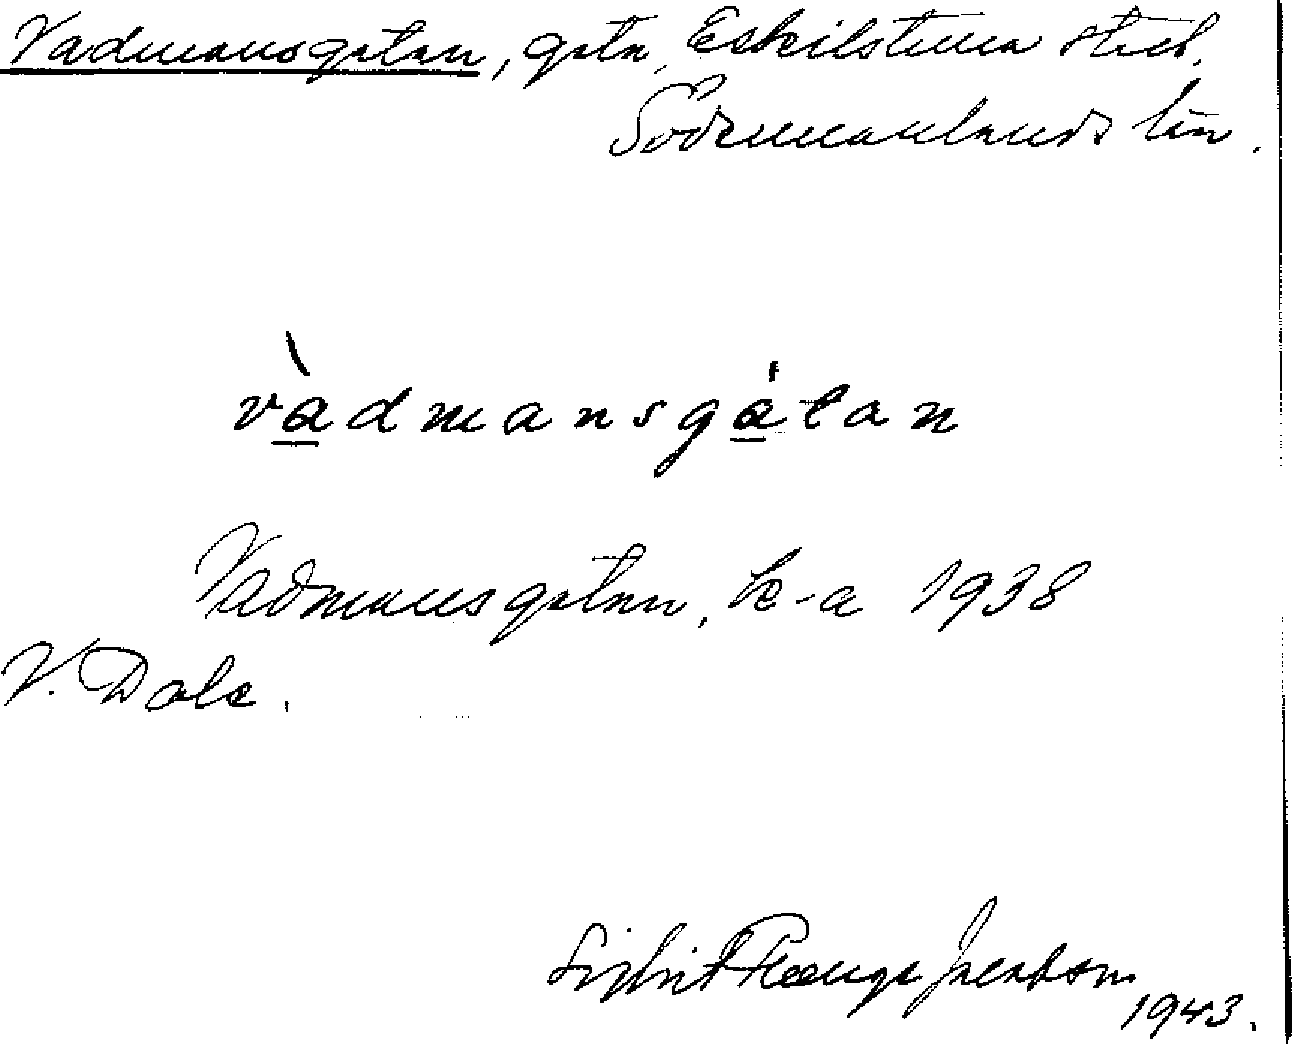 Vadmansgatan, gata, Eskilstuna stad,
Södermanlands län.
vàdmansgátan
Vadmansgatan, k-a 1938
V. Dale.
Sigbrit Plænge Jacobson
1943.